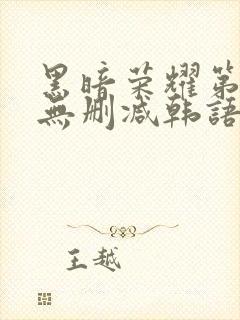 黑暗荣耀第
無删减韩語
王越